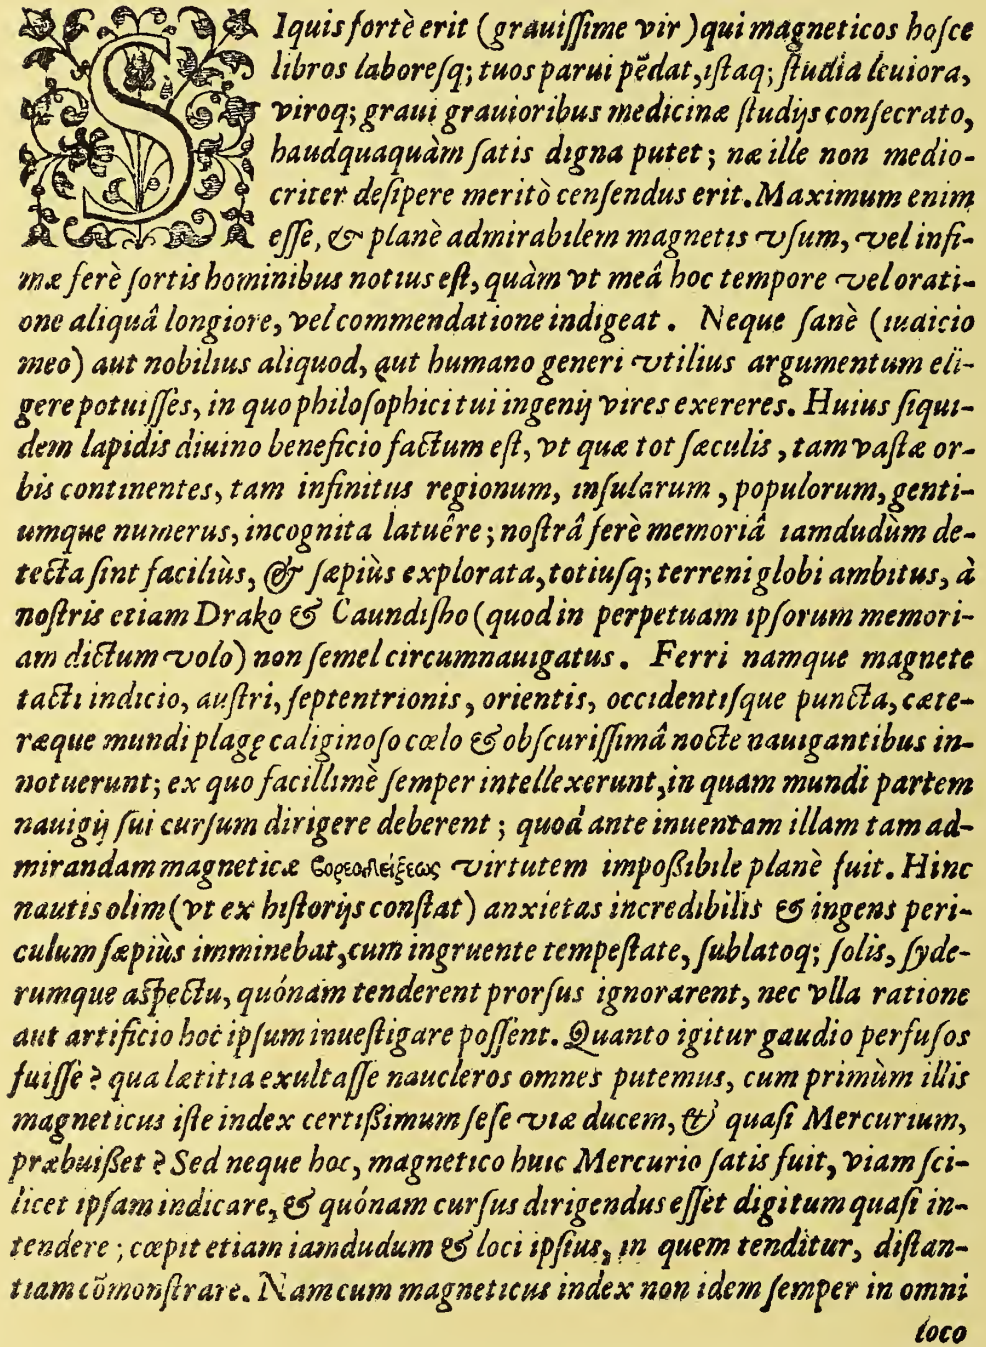 SIquis fortè erit (grauissime vir) qui magneticos hosce
libros laboresq; tuos parui pẽdat, istaq; studia leuiora,
viroq; graui grauioribus medicinæ studijs consecrato,
haudquaquàm satis digna putet; næ ille non medio-
criter desipere meritò censendus erit. Maximum enim
esse, & planè admirabilem magnetis vsum, vel infi-
mæ ferè sortis hominibus notius est, quàm vt meâ hoc tempore vel orati-
one aliquâ longiore, vel commendatione indigeat. Neque sanè (iudicio
meo) aut nobilius aliquod, aut humano generi vtilius argumentum eli-
gere potuisses, in quo philosophici tui ingenij vires exereres. Huius siqui-
dem lapidis diuino beneficio factum est, vt quæ tot sæculis, tam vastæ or-
bis continentes, tam infinitus regionum, insularum, populorum, genti-
umque numerus, incognita latuêre; nostrâ ferè memoriâ iamdudùm de-
tecta sint faciliùs, & sæpiùs explorata, totiusq; terreni globi ambitus, à
nostris etiam Drako & Caundisho (quod in perpetuam ipsorum memori-
am dictum volo) non semel circumnauigatus. Ferri namque magnete
tacti indicio, austri, septentrionis, orientis, occidentisque puncta, cæte-
ræque mundi plagę caliginoso cœlo & obscurissimâ nocte nauigantibus in-
notuerunt; ex quo facillimè semper intellexerunt, in quam mundi partem
nauigij sui cursum dirigere deberent; quod ante inuentam illam tam ad-
mirandam magneticæ βορεοδείξεως virtutem impossibile planè fuit. Hinc
nautis olim (vt ex historijs constat) anxietas incredibilis & ingens peri-
culum sæpiùs imminebat, cum ingruente tempestate, sublatoq; solis, syde-
rumque aspectu, quónam tenderent prorsus ignorarent, nec vlla ratione
aut artificio hoc ipsum inuestigare possent. Quanto igitur gaudio perfusos
fuisse? qua lætitia exultasse naucleros omnes putemus, cum primùm illis
magneticus iste index certissimum sese viæ ducem, & quasi Mercurium,
præbuisset? Sed neque hoc, magnetico huic Mercurio satis fuit, viam sci-
licet ipsam indicare, & quónam cursus dirigendus esset digitum quasi in-
tendere; cœpit etiam iamdudum & loci ipsius, in quem tenditur, distan-
tiam cõmonstrare. Nam cum magneticus index non idem semper in omni
loco